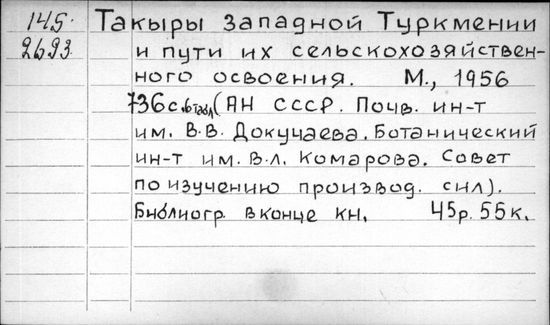 145.
2693
Такыры Западной Туркмении
и пути их сельскохозяйствен-
ного освоения. М., 1956
736с. 6 табл (АН СССР. Почв. ин-т
им. В.В. Докучаева. Ботанический
ин-т им. В.Л. Комарова. Совет
по изучению производ. сил).
Библиогр. в конце кн. 45р. 55к.